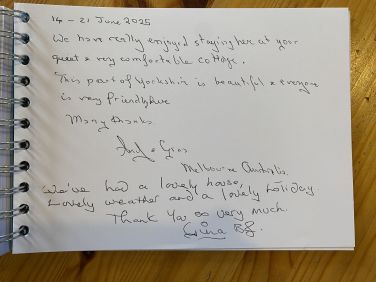 14 - 21 June 2025
We have really enjoyed staying here at your
quiet & very comfortable cottage.
This part of Yorkshire is beautiful & everyone
is very friendly here
Many thanks
Melbourne Australia.
We've had a lovely house,
Lovely weather and a lovely holiday.
Thank You so very much.